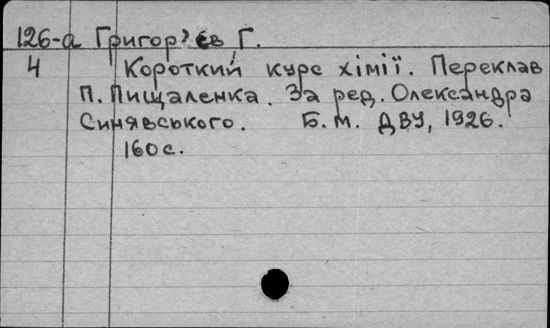 126-а Григор'єв, Г.
4 Короткий курс хімії. Переклав
П. Пищаленка. За ред. Олександра
Синявського. Б. м. ДВУ, 1926.
160 с.